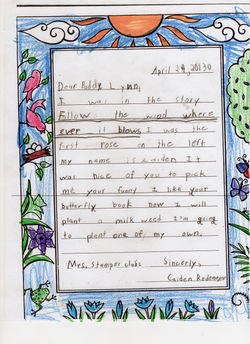 April 29, 20130
Dear Paddy Lynn,
I was in the story
Follow the wind where
ever it blows, I was the
first rose on the left
my name is Caiden It
was nice of you to pick
me your funny I like your
butterfly book now I will
plant a milk weed I'm going
to plant one of my own.
Mrs. Stamper class Sincerely,
Caiden